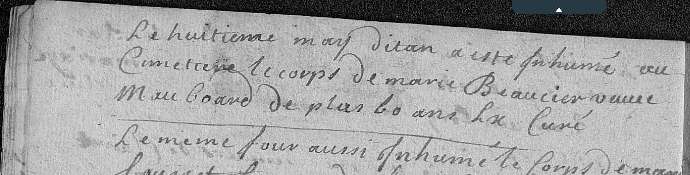 Le huitieme may ditan a este Inhumé au
Cimettere le corps de marie Beaucier veuve
Mauboard de plus 60 ans Lx Curé
Le meme Jour aussi Inhumé le Corps de